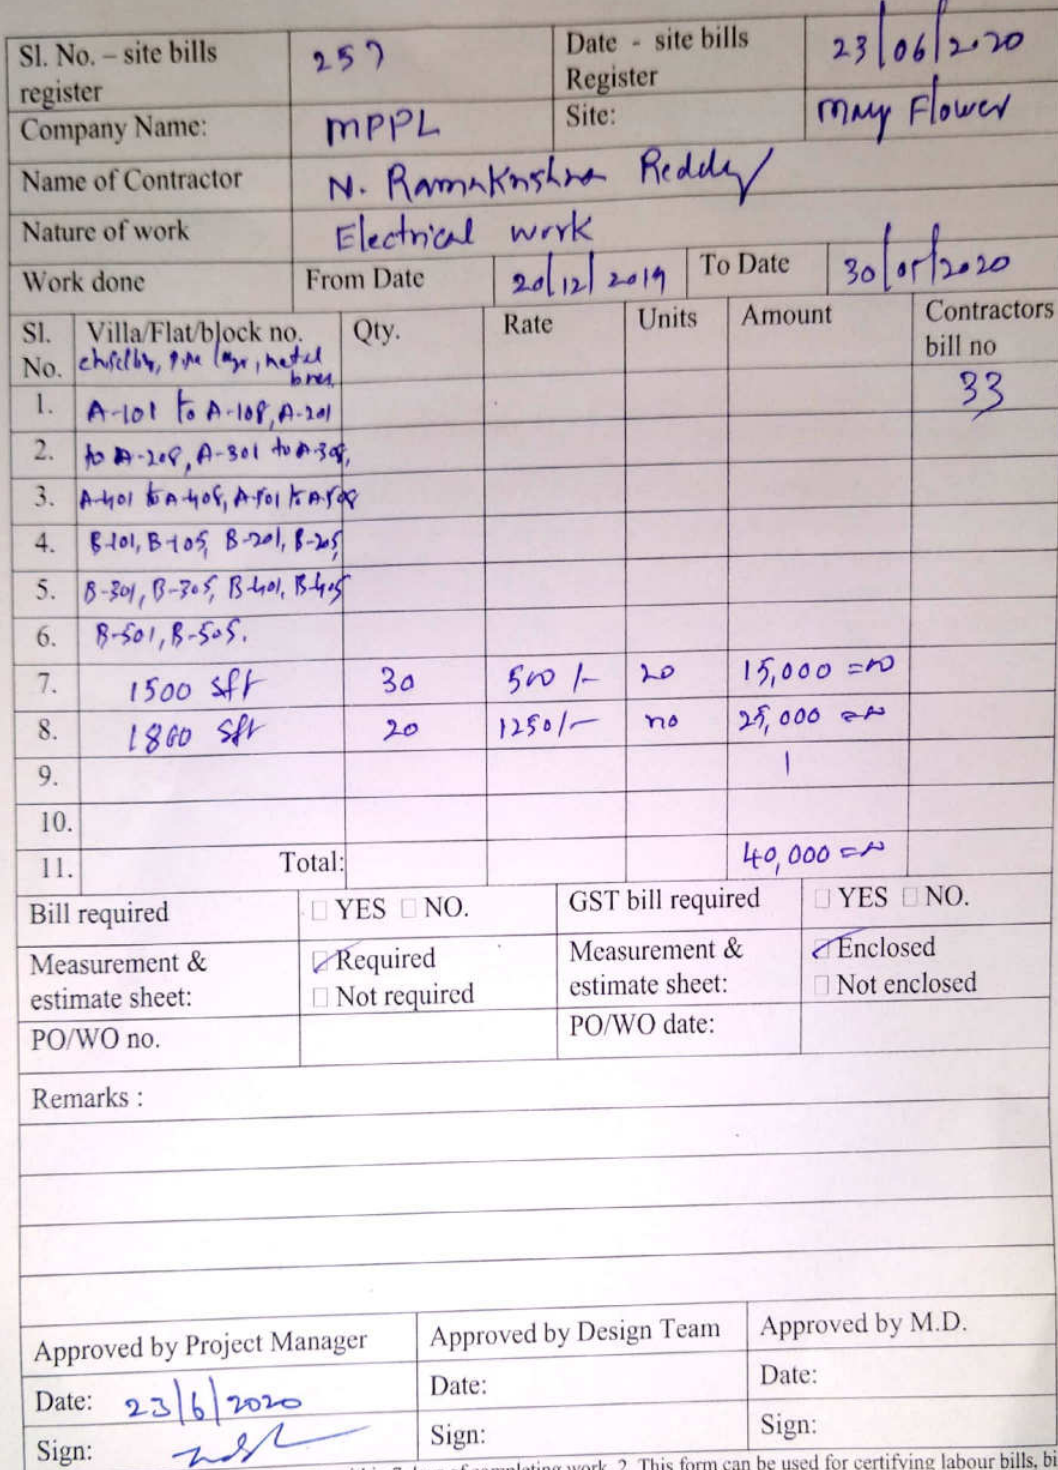 Sl. No. – site bills register 257 Date - site bills Register 23/06/2020
Company Name: MPPL Site: May Flower
Name of Contractor N. Ramakrishna Reddy
Nature of work Electrical work
Work done From Date 20/12/2019 To Date 30/05/2020
Sl. No. Villa/Flat/block no. Qty. Rate Units Amount Contractors bill no
33
1. A-101 to A-108, A-201
2. to A-208, A-301 to A-308,
3. A-401 to A-408, A-501 to A-508
4. B-101, B-105, B-201, B-205,
5. B-301, B-305, B-401, B-405
6. B-501, B-505.
7. 1500 sft 30 500/- no 15,000=00
8. 1800 sft 20 1250/- no 25,000=00
9.
10.
11. Total: 40,000=00
Bill required YES NO. GST bill required YES NO.
Measurement & estimate sheet: Required Not required Measurement & estimate sheet: Enclosed Not enclosed
PO/WO no. PO/WO date:
Remarks :
Approved by Project Manager Approved by Design Team Approved by M.D.
Date: 23/6/2020 Date: Date:
Sign: Sign: Sign:
completing work. 2. This form can be used for certifying labour bills, bi